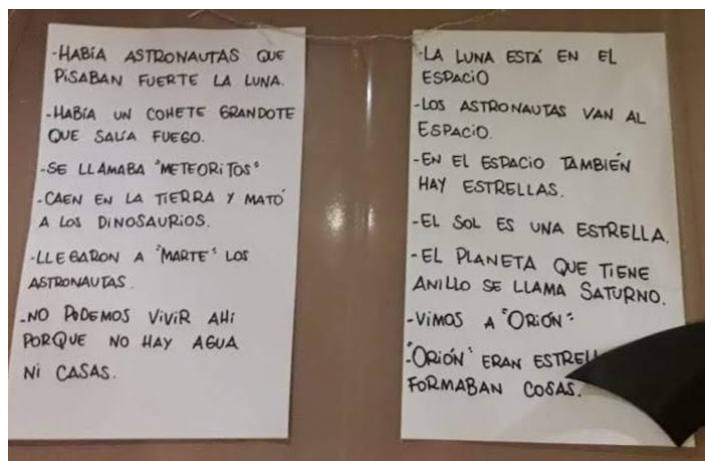 -HABÍA ASTRONAUTAS QUE
PISABAN FUERTE LA LUNA.
-HABÍA UN COHETE GRANDOTE
QUE SALÍA FUEGO.
-SE LLAMABA "METEORITOS"
-CAEN EN LA TIERRA Y MATÓ
A LOS DINOSAURIOS.
-LLEGARON A "MARTE" LOS
ASTRONAUTAS.
-NO PODEMOS VIVIR AHI
PORQUE NO HAY AGUA
NI CASAS.
-LA LUNA ESTÁ EN EL
ESPACIO
-LOS ASTRONAUTAS VAN AL
ESPACIO.
-EN EL ESPACIO TAMBIÉN
HAY ESTRELLAS.
-EL SOL ES UNA ESTRELLA.
-EL PLANETA QUE TIENE
ANILLO SE LLAMA SATURNO.
-VIMOS A "ORIÓN"
-"ORIÓN" ERAN
FORMABAN COSAS.